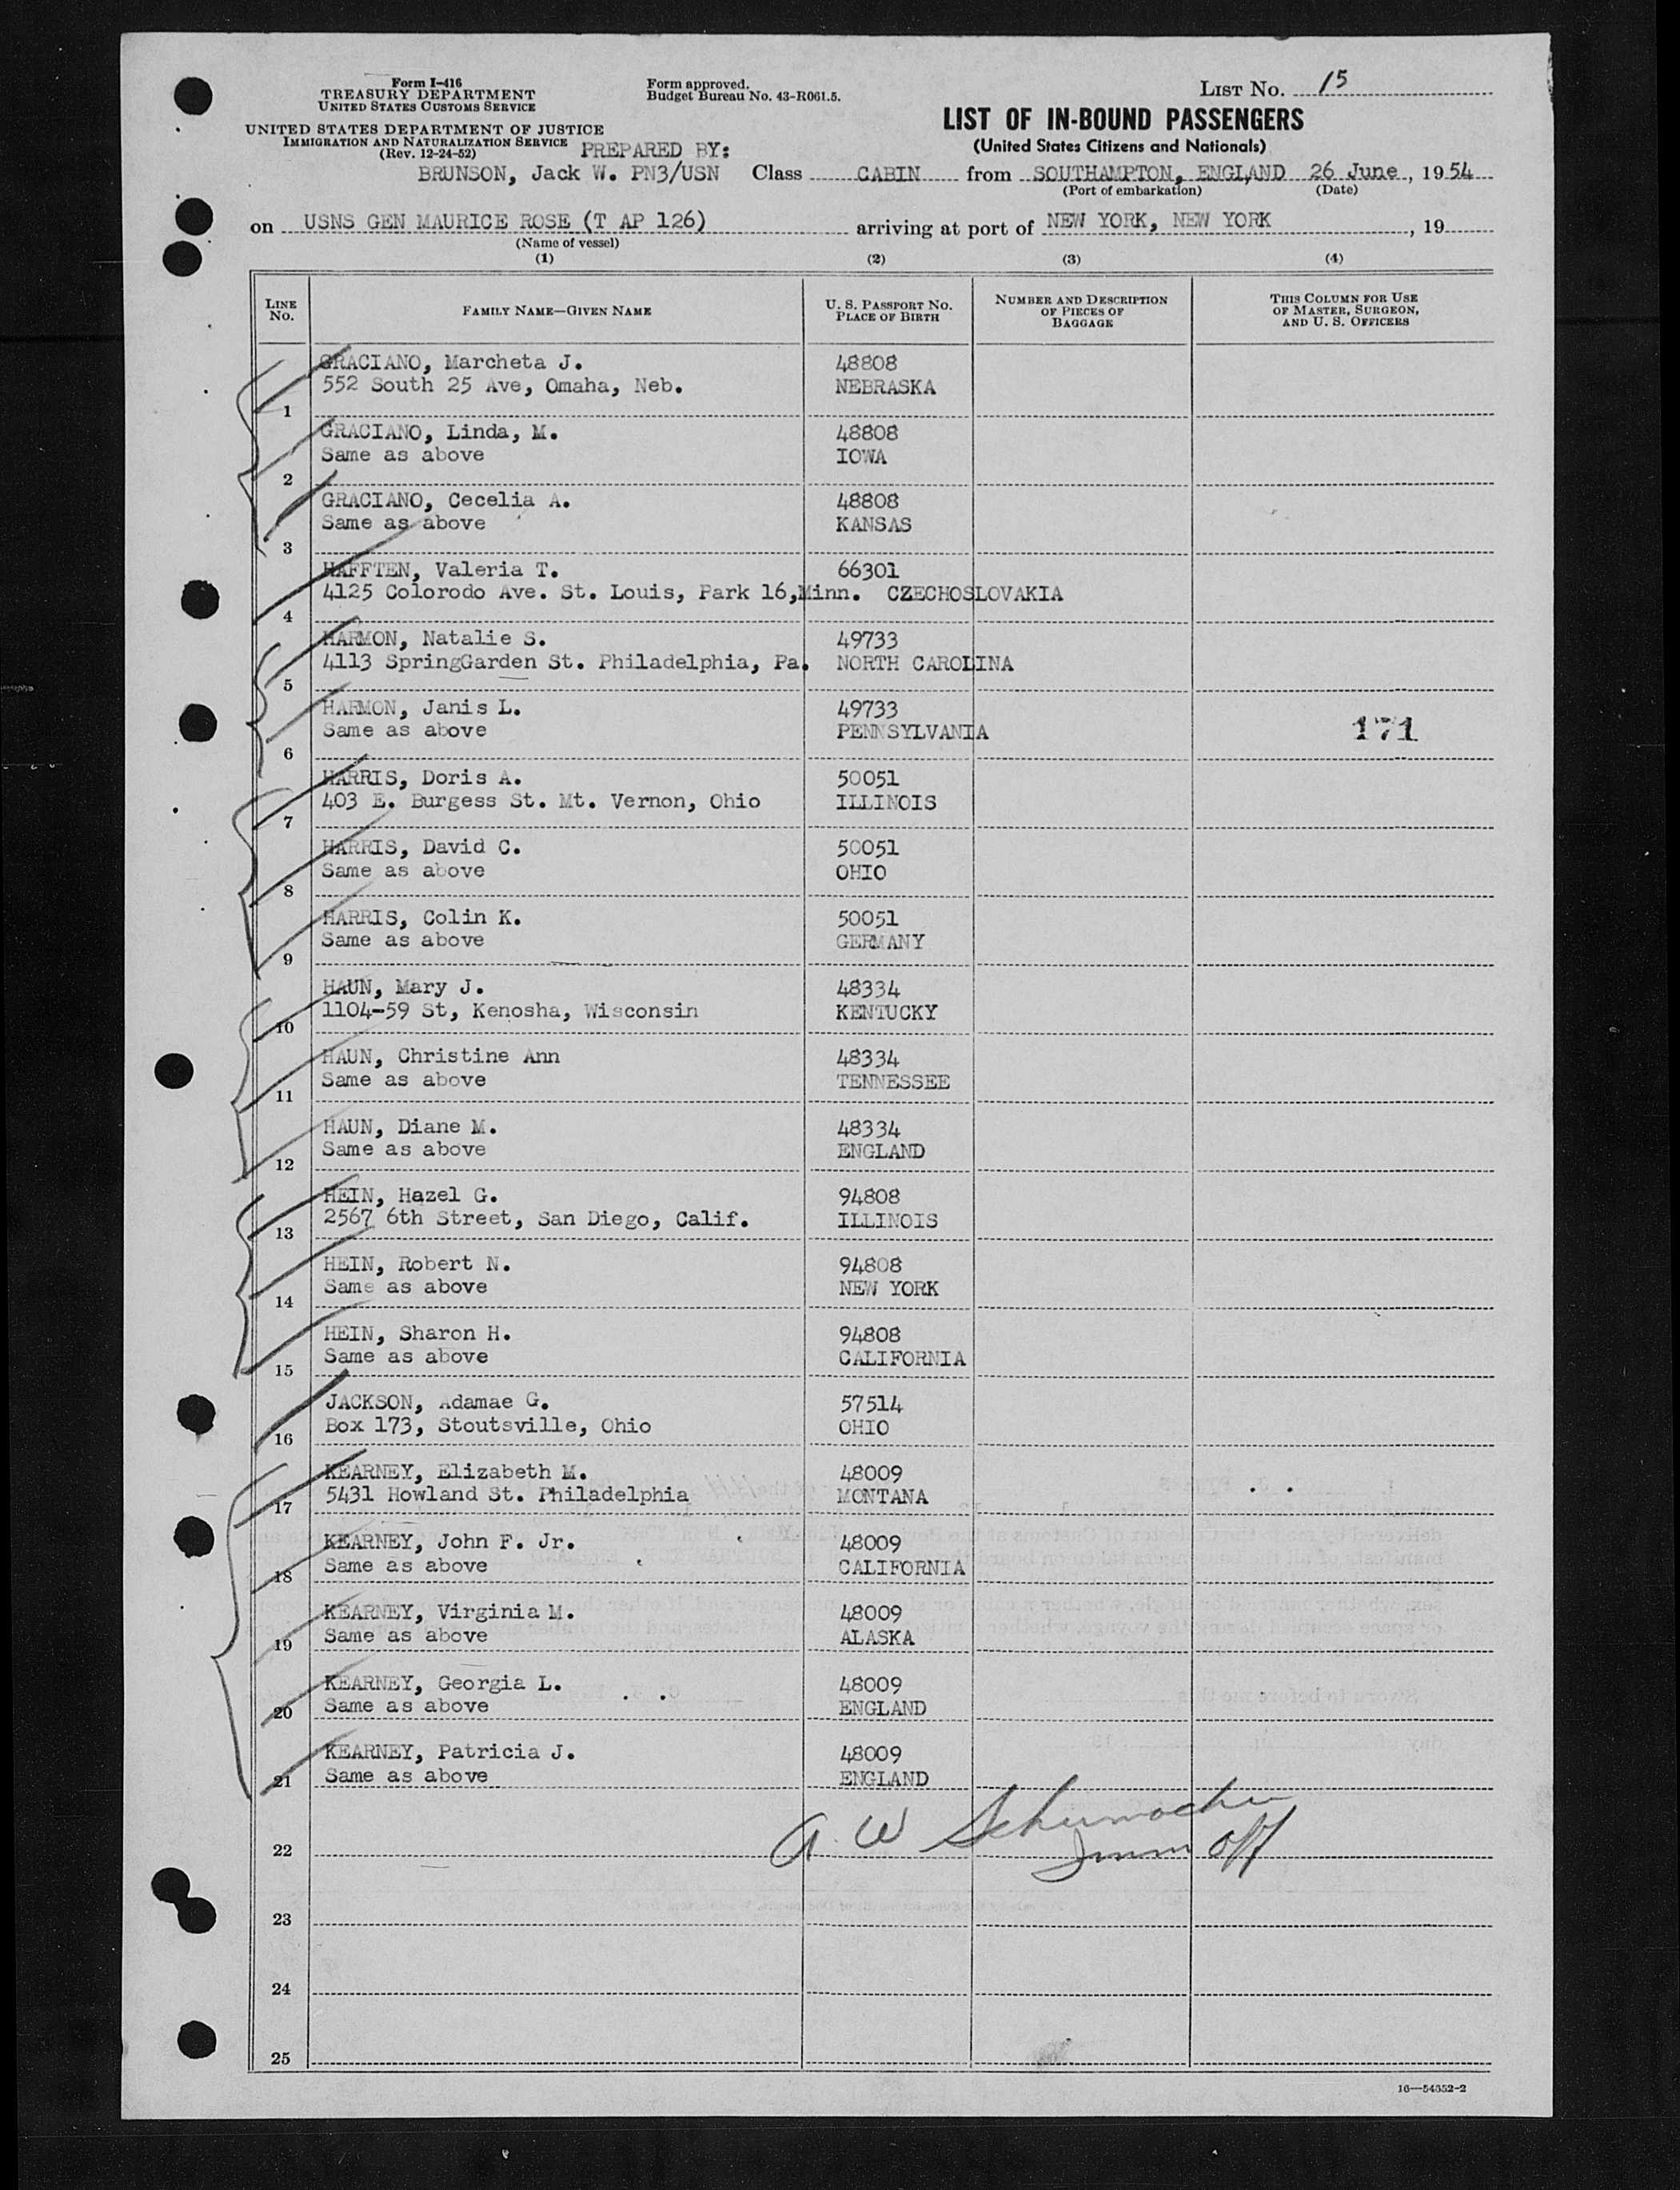 Form I-416
TREASURY DEPARTMENT
UNITED STATES CUSTOMS SERVICE
UNITED STATES DEPARTMENT OF JUSTICE
IMMIGRATION AND NATURALIZATION SERVICE
(Rev. 12-24-52)
Form approved.
Budget Bureau No. 43-R061.5.
LIST NO. 15
LIST OF IN-BOUND PASSENGERS
(United States Citizens and Nationals)
PREPARED BY:
BRUNSON, Jack W. PN3/USN Class CABIN from SOUTHAMPTON, ENGLAND 26 June, 1954
(Port of embarkation) (Date)
on USNS GEN MAURICE ROSE (T AP 126) arriving at port of NEW YORK, NEW YORK, 19
(Name of vessel)
(1) (2) (3) (4)
LINE NO.
FAMILY NAME—GIVEN NAME
U. S. PASSPORT NO.
PLACE OF BIRTH
NUMBER AND DESCRIPTION
OF PIECES OF
BAGGAGE
THIS COLUMN FOR USE
OF MASTER, SURGEON,
AND U. S. OFFICERS
GRACIANO, Marcheta J. 48808
552 South 25 Ave, Omaha, Neb. NEBRASKA
1
GRACIANO, Linda, M. 48808
Same as above IOWA
2
GRACIANO, Cecelia A. 48808
Same as above KANSAS
3
HAFFTEN, Valeria T. 66301
4125 Colorodo Ave. St. Louis, Park 16,Minn. CZECHOSLOVAKIA
4
HARMON, Natalie S. 49733
4113 SpringGarden St. Philadelphia, Pa. NORTH CAROLINA
5
HARMON, Janis L. 49733
Same as above PENNSYLVANIA 171
6
HARRIS, Doris A. 50051
403 E. Burgess St. Mt. Vernon, Ohio ILLINOIS
7
HARRIS, David C. 50051
Same as above OHIO
8
HARRIS, Colin K. 50051
Same as above GERMANY
9
HAUN, Mary J. 48334
1104-59 St, Kenosha, Wisconsin KENTUCKY
10
HAUN, Christine Ann 48334
Same as above TENNESSEE
11
HAUN, Diane M. 48334
Same as above ENGLAND
12
HEIN, Hazel G. 94808
2567 6th Street, San Diego, Calif. ILLINOIS
13
HEIN, Robert N. 94808
Same as above NEW YORK
14
HEIN, Sharon H. 94808
Same as above CALIFORNIA
15
JACKSON, Adamae G. 57514
Box 173, Stoutsville, Ohio OHIO
16
KEARNEY, Elizabeth M. 48009
5431 Howland St. Philadelphia MONTANA
17
KEARNEY, John F. Jr. 48009
Same as above CALIFORNIA
18
KEARNEY, Virginia M. 48009
Same as above ALASKA
19
KEARNEY, Georgia L. 48009
Same as above ENGLAND
20
KEARNEY, Patricia J. 48009
Same as above ENGLAND
21
A. W Schumacher
22
Imm Off
23
24
25
16—54652-2